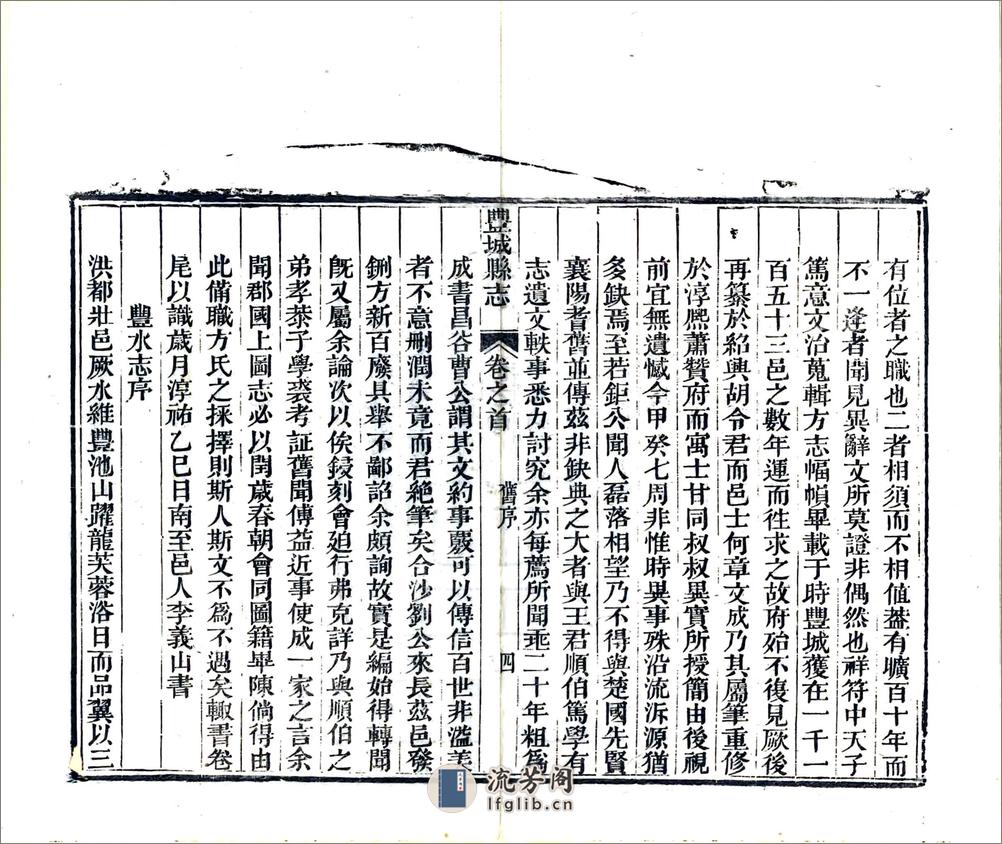 有位者之職也二者相須而不相值蓋有曠百十年而
不一逢者聞見異辭文所莫證非偶然也祥符中天子
篤意文治蒐輯方志幅幀畢載于時豐城獲在一千一
百五十三邑之數年運而徃求之故府殆不復見厥後
再纂於紹興胡令君而邑士何章文成乃其屬筆重修
於淳熈蕭贊府而寓士甘同叔叔異實所授簡由後視
前宜無遺憾今甲癸七周非惟時異事殊沿流泝源猶
多缺焉至若鉅公聞人磊落相望乃不得與楚國先賢
襄陽耆舊並傳茲非缺典之大者與王君順伯篤學有
志遺文軼事悉力討究余亦每薦所聞乖二十年粗為
豐城縣志 卷之首 舊序 四
成書昌谷曹公謂其文約事覈可以傳信百世非溢美
者不意刪潤未竟而君絕筆矣合沙劉公來長茲邑發
鉶方新百廢具舉不鄙詔余頗詢故實是編始得轉聞
旣又屬余論次以俟鋟刻會廹行弗克詳乃與順伯之
弟孝恭子學裘考証舊聞傅益近事使成一家之言余
聞郡國上圖志必以閏歲春朝會同圖籍畢陳倘得由
此備職方氏之採擇則斯人斯文不爲不遇矣輙書卷
尾以識歲月淳祐乙巳日南至邑人李義山書
豐水志序
洪都壯邑厥水維豐池山躍龍芙蓉浴日而品翼以三
流芳阁
lfglib.cn